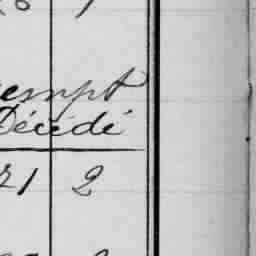 empt
Décédé
21 2